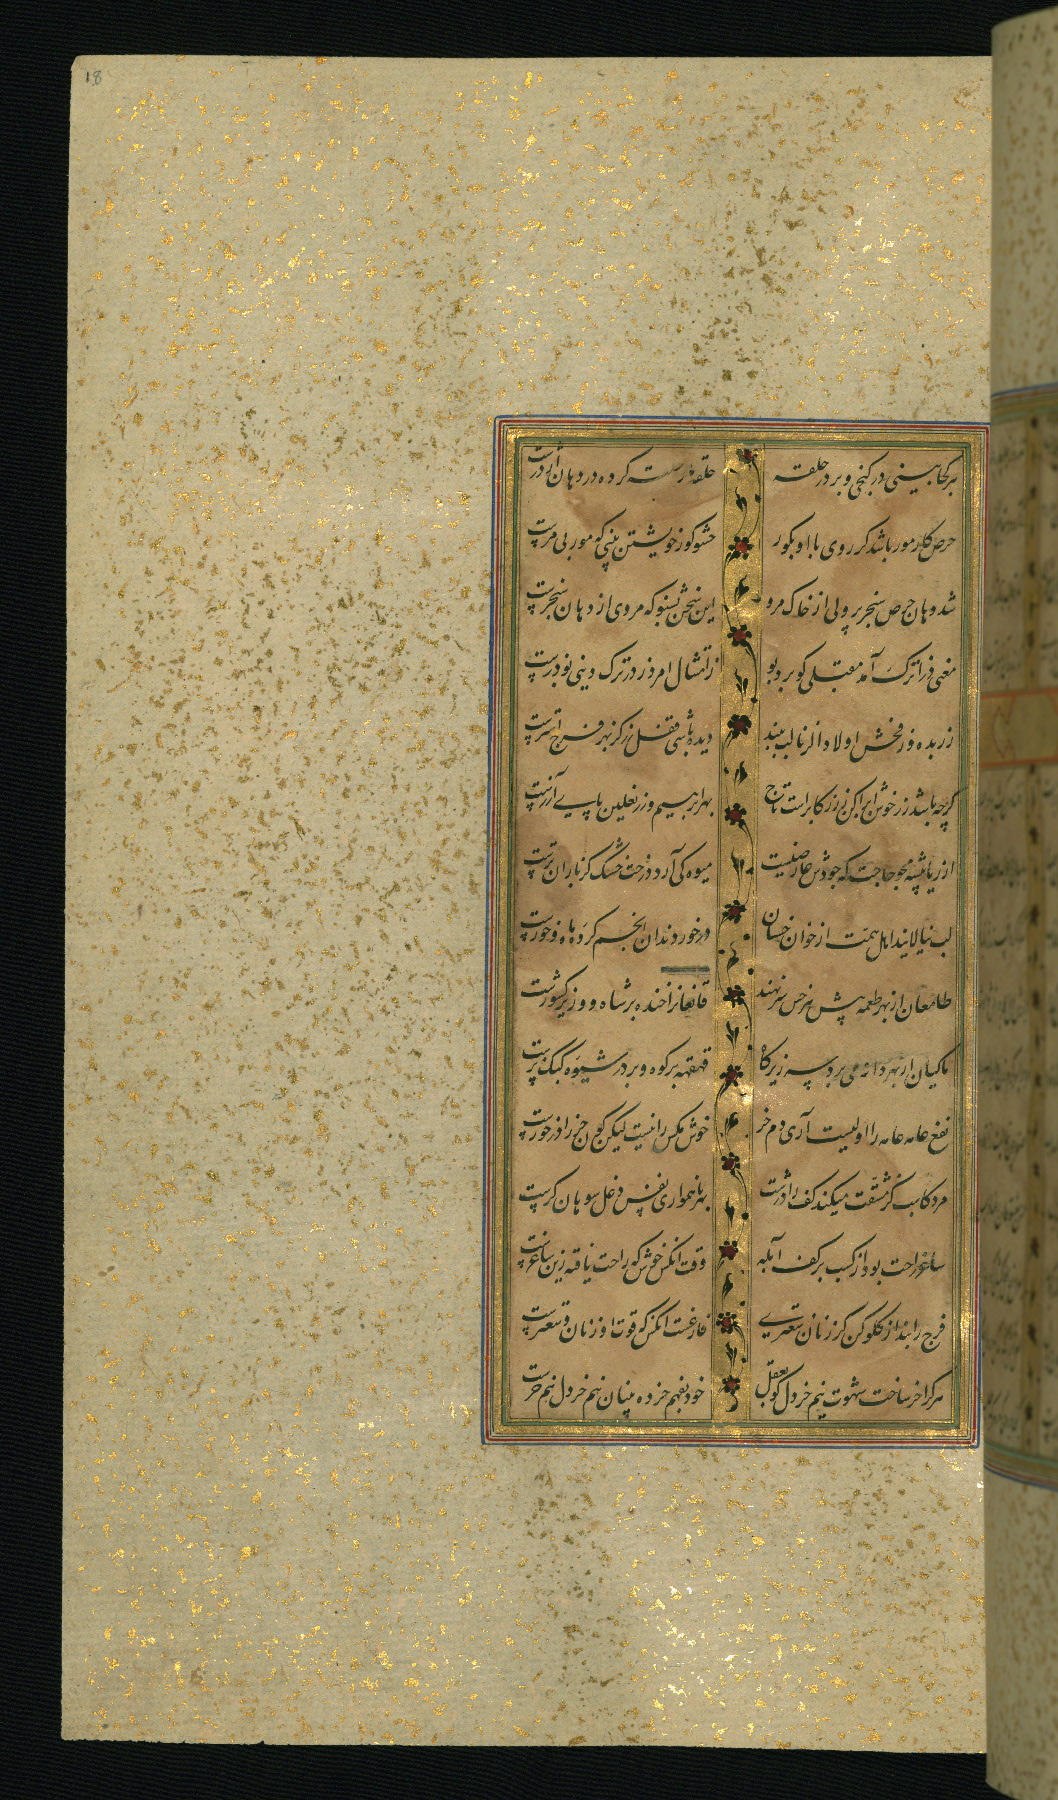 18
هر کجا بینی در کنجی و بر در حلقه
حلقه در ست کرده در دهان اژدرست
حرص کار مور باشد کر روی با او بکور
حشو کور خویشتن بینی کو مور بی مرست
شد دهان حرص سنجر پر ولی از خاک مرو
این سخن بشنو که مروی از دهان سنجرست
معنی فر اترک آمد مقبلی کو برد بو
ز امتثال امر زر در ترک دینی بوذرست
زر بده وز فحش اولاد الزنا لب ببند
دیده باشی قفل زر کز بهر فرج استرست
کرچه باشد زر خوش ابراکن ز زر
بهر ابرهیم وزر نعلین پای آزرست
از ریا پیشه مجو حاجت که جودش عارضیست
میوه کی آرد درخت خشک کز باران ترست
لب نیالایند اهل همت از خوان خسان
در خور دندان انجم کرده ماه و خورست
طامعان از بهر طعمه پیش هر خس سر نهند
قانعانرا خنده بر شاه و وزیر کشورست
ماکیان از بهر دانه می برد سر زیر کاه
قهقهه بر کوه و بر در شیوه کبک نرست
نفع عامه عامه را اولیست آری دم خر
خوش مکس را نیست لیکن کون خر را در خورست
مرد کاسب کز مشقت میکند کف را درشت
بهر ناهمواری نفس دغل سوهان کرست
ساغر راحت بود از کسب بر کف آبله
وقت آنکس خوش که راحت یافته زین ساغرست
فرج را بند از کلو کن کز زنان
فارغست آنکس که قوت او ز نان
هر کرا خر ساخت شهوت نیم خردل کو بعقل
خود بفهم خرده بینان نیم خردل نیم خرست